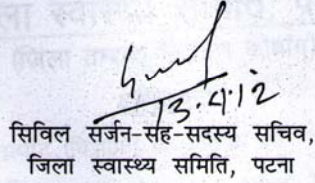 13.4.12
सिविल सर्जन-सह-सदस्य सचिव,
जिला स्वास्थ्य समिति, पटना